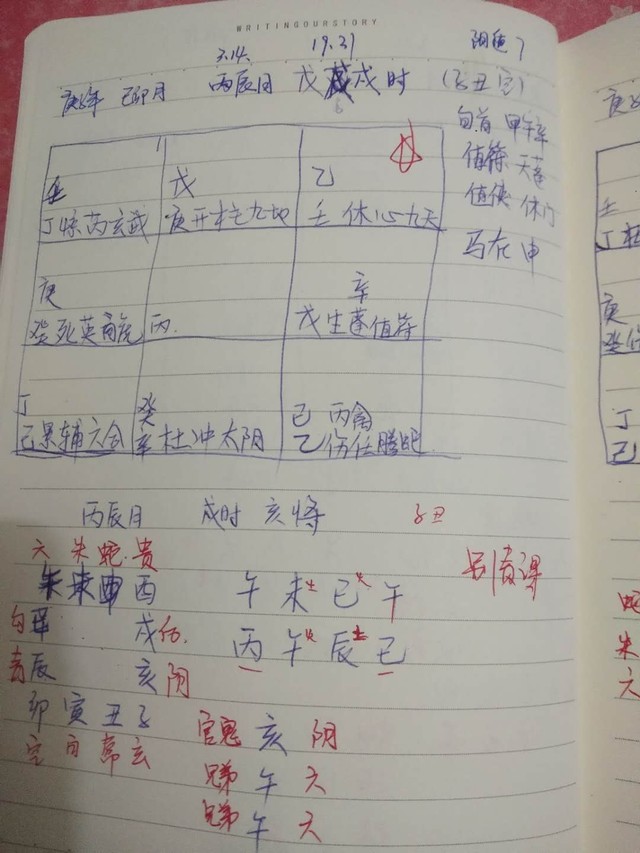 WRITINGOURSTORY
3.14. 19.31
庚子年 己卯月 丙辰日 戊戌时 (子丑空)
阴遁7
旬首 甲午辛
值符 天蓬
值使 休门
马在申
壬 戊 乙
丁惊芮玄武 庚开柱九地 壬休心九天
庚 辛
癸死英白虎 丙 戊生蓬值符
丁 癸 己 丙禽
己景辅六合 辛杜冲太阴 乙伤任腾蛇
丙辰日 戌时 亥将 子丑
六 朱 蛇 贵 别责课
酉 午 未土 巳火 午
勾 戌后 丙 午火 辰土 巳
青辰 亥阴
卯 寅 丑 子 官鬼 亥 阴
空 白 常 玄
兄弟 午 六
兄弟 午 六